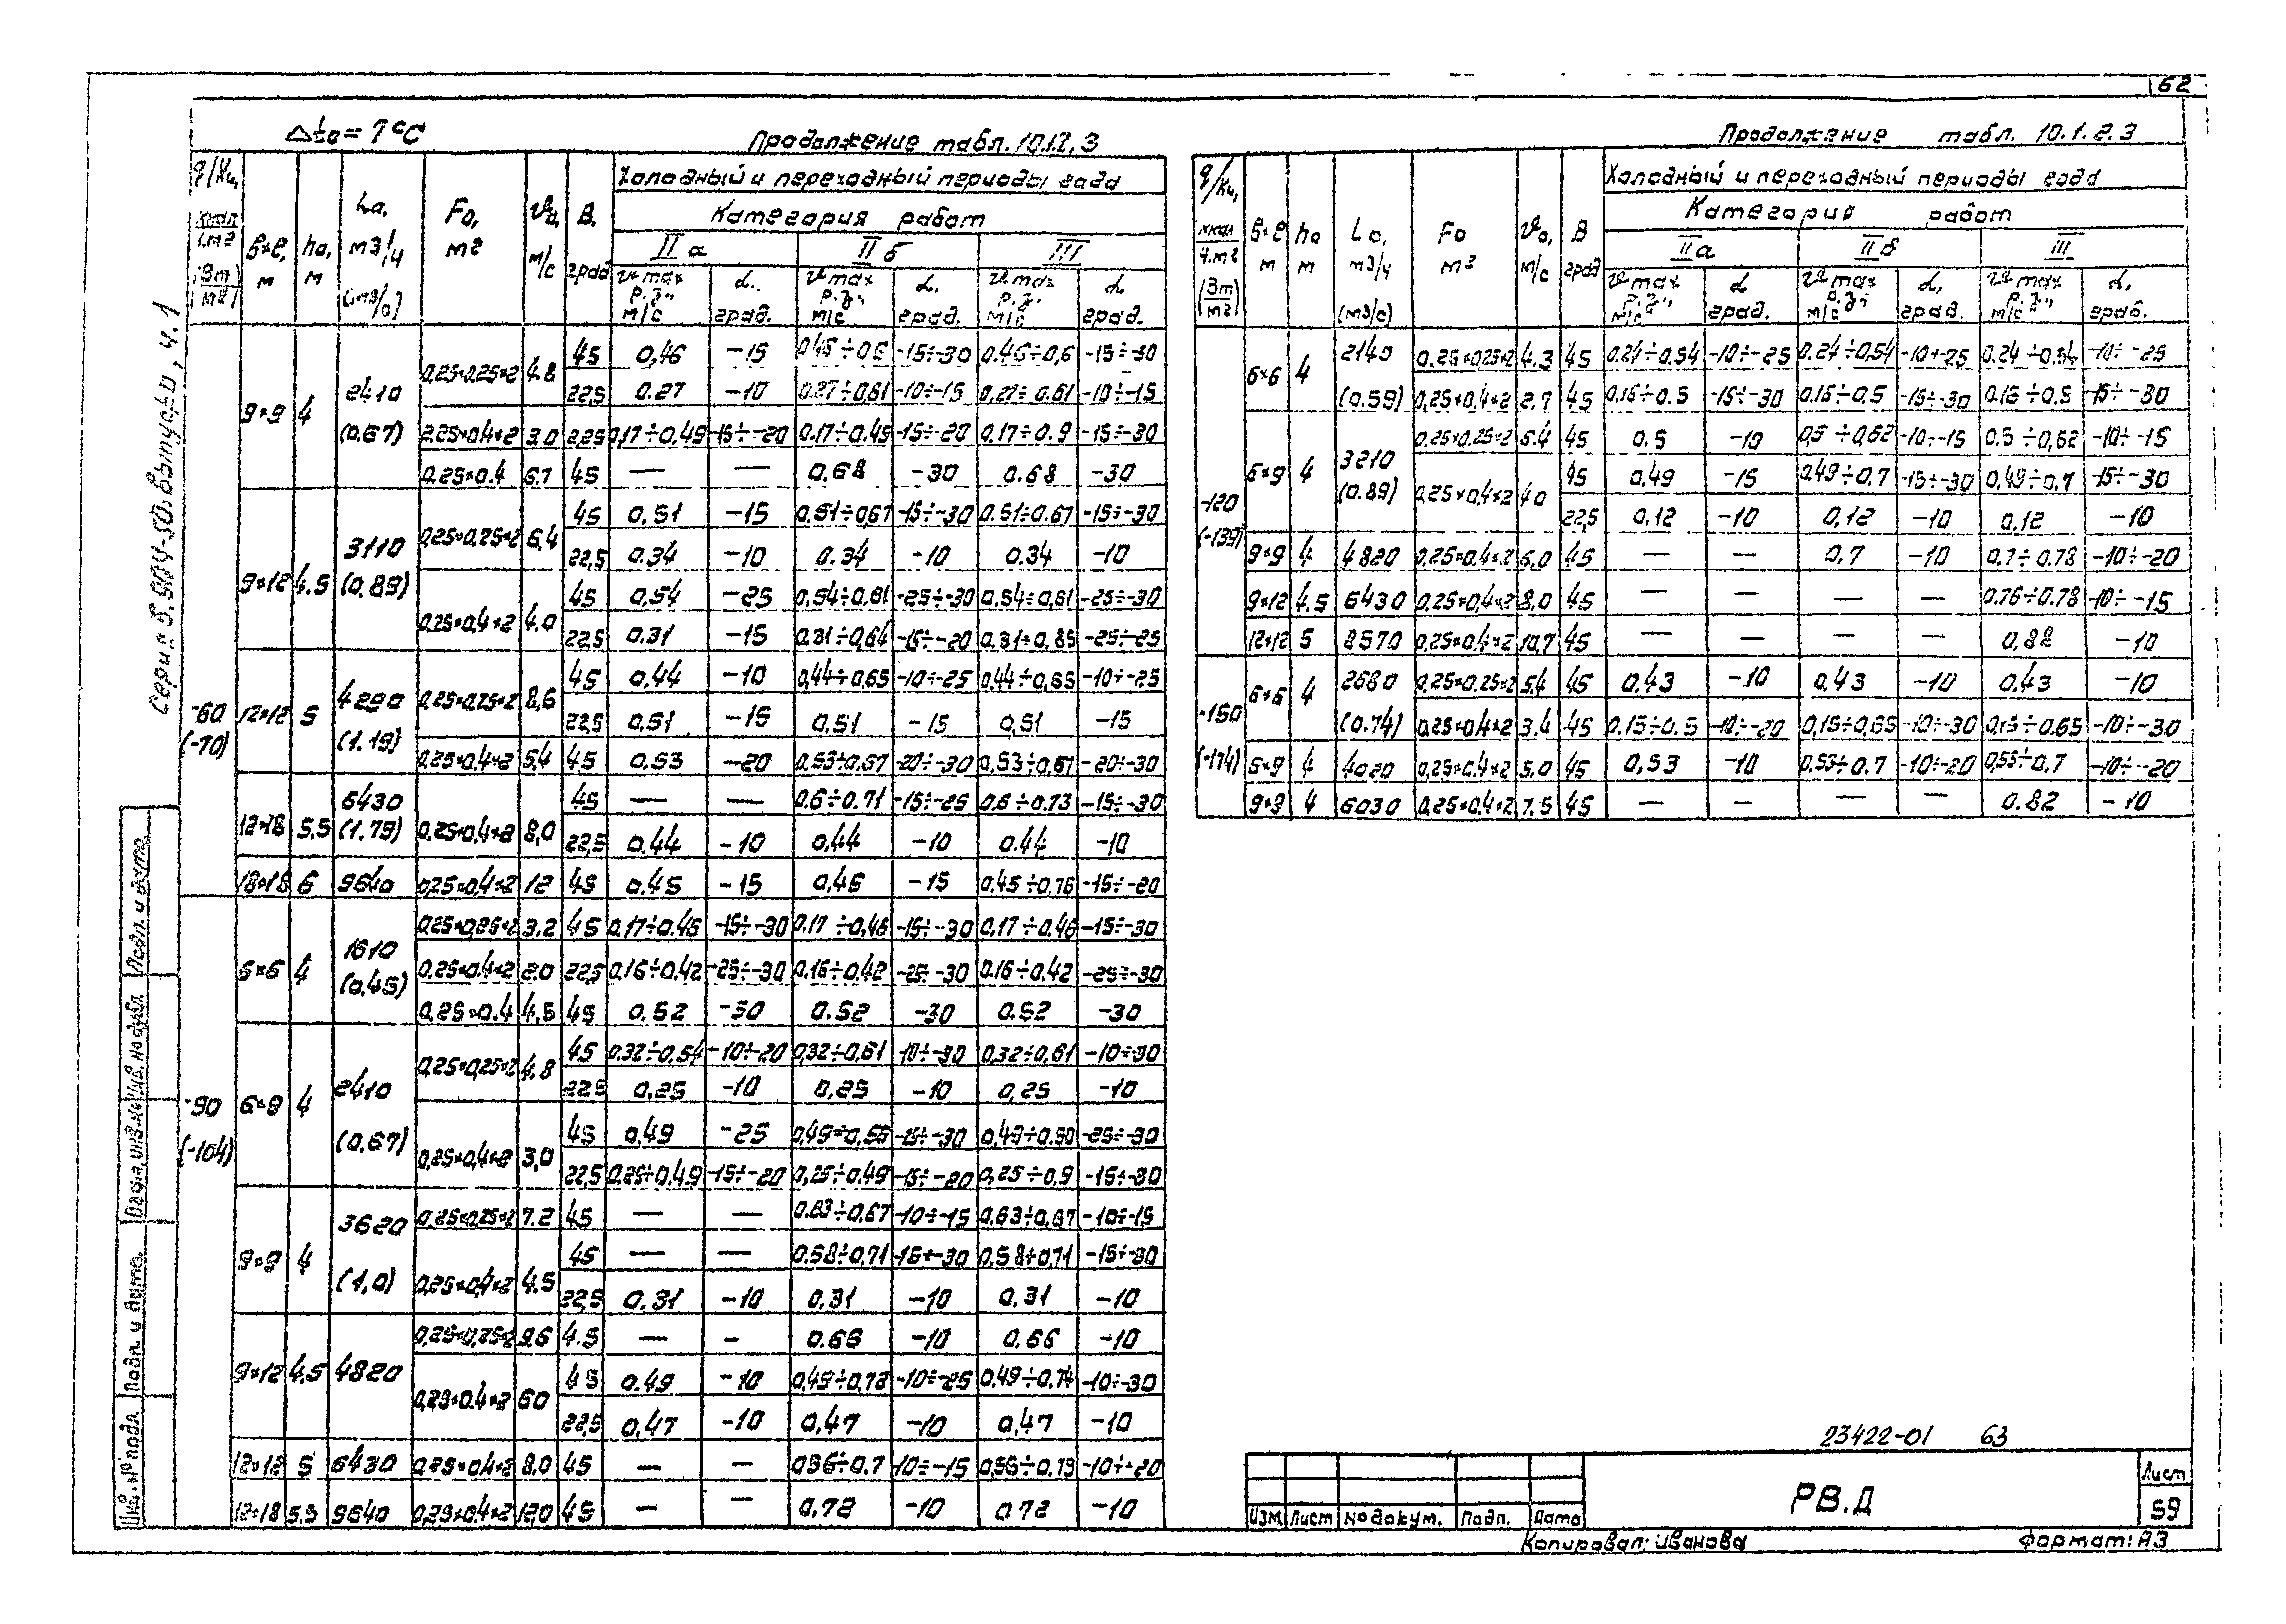 62
Δto = 7°C
Продолжение табл. 10.1.2.3
q/Кц, ккал/ч.м2 (Вт/м2) | B×ℓ, м | ho, м | Lo, м3/ч (м3/с) | Fo, м2 | Vo, м/с | β, град | Холодный и переходный периоды года
Категория работ
IIа | IIб | III
Vmax р.з., м/с | α, град. | Vmax р.з., м/с | α, град. | Vmax р.з., м/с | α, град.
-60 (-70) | 9×9 | 4 | 2410 (0.67) | 0,25×0,25×2 | 4.8 | 45 | 0,46 | -15 | 0,46÷0,6 | -15÷-30 | 0,46÷0,6 | -15÷-30
22,5 | 0.27 | -10 | 0.27÷0,61 | -10÷-15 | 0,27÷0.61 | -10÷-15
0,25×0,4×2 | 3.0 | 22,5 | 0,17÷0,49 | -15÷-20 | 0.17÷0.49 | -15÷-20 | 0.17÷0.9 | -15÷-30
0.25×0.4 | 6.7 | 45 | — | — | 0.68 | -30 | 0.68 | -30
9×12 | 4.5 | 3110 (0.89) | 0,25×0,25×2 | 6,4 | 45 | 0.51 | -15 | 0.51÷0,67 | -15÷-30 | 0.51÷0.67 | -15÷-30
22,5 | 0.34 | -10 | 0.34 | -10 | 0.34 | -10
0,25×0,4×2 | 4.0 | 45 | 0,54 | -25 | 0,54÷0,61 | -25÷-30 | 0,54÷0,61 | -25÷-30
22,5 | 0.31 | -15 | 0.31÷0,64 | -15÷-20 | 0,31÷0,85 | -25÷-25
12×12 | 5 | 4290 (1.19) | 0,25×0,25×2 | 8,6 | 45 | 0.44 | -10 | 0,44÷0,65 | -10÷-25 | 0,44÷0,65 | -10÷-25
22,5 | 0,51 | -15 | 0,51 | -15 | 0,51 | -15
0,25×0,4×2 | 5,4 | 45 | 0,53 | -20 | 0,53÷0,67 | -20÷-30 | 0,53÷0,67 | -20÷-30
12×18 | 5.5 | 6430 (1.79) | 0,25×0,4×2 | 8,0 | 45 | — | — | 0.6÷0.71 | -15÷-25 | 0,6÷0.73 | -15÷-30
22,5 | 0.44 | -10 | 0,44 | -10 | 0.44 | -10
18×18 | 6 | 9640 | 0,25×0,4×2 | 12 | 45 | 0.45 | -15 | 0,45 | -15 | 0.45÷0,76 | -15÷-20
-90 (-104) | 6×6 | 4 | 1610 (0,45) | 0,25×0,25×2 | 3.2 | 45 | 0,17÷0.46 | -15÷-30 | 0,17÷0,46 | -15÷-30 | 0,17÷0.46 | -15÷-30
0,25×0,4×2 | 2.0 | 22,5 | 0,16÷0,42 | -25÷-30 | 0,16÷0,42 | -25÷-30 | 0.16÷0,42 | -25÷-30
0,25×0.4 | 4,5 | 45 | 0.52 | -30 | 0.52 | -30 | 0.52 | -30
6×9 | 4 | 2410 (0.67) | 0,25×0,25×2 | 4.8 | 45 | 0.32÷0,54 | -10÷-20 | 0,32÷0,61 | -10÷-30 | 0,32÷0.61 | -10÷-30
22.5 | 0,25 | -10 | 0,25 | -10 | 0,25 | -10
0,25×0,4×2 | 3,0 | 45 | 0,49 | -25 | 0,49÷0,56 | -25÷-30 | 0,49÷0.90 | -25÷-30
22,5 | 0,25÷0,49 | -15÷-20 | 0,25÷0,49 | -15÷-20 | 0,25÷0,9 | -15÷-30
9×9 | 4 | 3620 (1,0) | 0,25×0,25×2 | 7.2 | 45 | — | — | 0.63÷0,67 | -10÷-15 | 0,63÷0,67 | -10÷-15
0,25×0,4×2 | 4.5 | 45 | — | — | 0,58÷0,71 | -15÷-30 | 0.58÷0,71 | -15÷-30
22,5 | 0.31 | -10 | 0.31 | -10 | 0,31 | -10
9×12 | 4,5 | 4820 | 0,25×0,25×2 | 9.6 | 4.5 | — | - | 0.66 | -10 | 0,66 | -10
0,25×0.4×2 | 60 | 45 | 0.49 | -10 | 0,49÷0,72 | -10÷-25 | 0.49÷0,74 | -10÷-30
22,5 | 0,47 | -10 | 0,47 | -10 | 0,47 | -10
12×12 | 5 | 6430 | 0,25×0,4×2 | 8,0 | 45 | — | — | 0,56÷0.7 | -10÷-15 | 0,56÷0.73 | -10÷-20
12×18 | 5.5 | 9640 | 0,25×0,4×2 | 120 | 45 | — | — | 0,72 | -10 | 0,72 | -10
Продолжение табл. 10.1.2.3
q/Кц, ккал/ч.м2 (Вт/м2) | B×ℓ м | ho м | Lo, м3/ч (м3/с) | Fo м2 | Vo, м/с | β град | Холодный и переходный периоды года
Категория работ
IIа | IIб | III
Vmax р.з., м/с | α град. | Vmax р.з., м/с | α, град. | Vmax р.з., м/с | α, град.
-120 (-139) | 6×6 | 4 | 2140 (0.59) | 0.25×0,25×2 | 4.3 | 45 | 0.24÷0.54 | -10÷-25 | 0.24÷0,54 | -10÷-25 | 0.24÷0.54 | -10÷-25
0,25×0,4×2 | 2.7 | 45 | 0.16÷0.5 | -15÷-30 | 0.16÷0,5 | -15÷-30 | 0.16÷0.5 | -15÷-30
6×9 | 4 | 3210 (0.89) | 0.25×0,25×2 | 5.4 | 45 | 0.5 | -10 | 0,5÷0,62 | -10÷-15 | 0.5÷0,62 | -10÷-15
0,25×0,4×2 | 40 | 45 | 0.49 | -15 | 0,49÷0,7 | -15÷-30 | 0,49÷0,7 | -15÷-30
22,5 | 0,12 | -10 | 0,12 | -10 | 0.12 | -10
9×9 | 4 | 4820 | 0,25×0,4×2 | 6,0 | 45 | — | — | 0,7 | -10 | 0.7÷0.78 | -10÷-20
9×12 | 4,5 | 6430 | 0,25×0,4×2 | 8,0 | 45 | — | — | — | — | 0.76÷0.78 | -10÷-15
12×12 | 5 | 8570 | 0,25×0,4×2 | 10,7 | 45 | — | — | — | — | 0,82 | -10
-150 (-174) | 6×6 | 4 | 2680 (0.74) | 0,25×0,25×2 | 5,4 | 45 | 0.43 | -10 | 0,43 | -10 | 0.43 | -10
0,25×0,4×2 | 3.4 | 45 | 0.15÷0.5 | -10÷-20 | 0,15÷0,65 | -10÷-30 | 0,15÷0.65 | -10÷-30
6×9 | 4 | 4020 | 0,25×0,4×2 | 5.0 | 45 | 0,53 | -10 | 0,53÷0.7 | -10÷-20 | 0,53÷0.7 | -10÷-20
9×9 | 4 | 6030 | 0,25×0,4×2 | 7.5 | 45 | — | — | — | — | 0.82 | -10
Серия 5.904-50, выпуск 0, ч. 1
Инв. № подл. | Подп. и дата. | Взам. инв. № | Инв. № дубл. | Подп. и дата
23422-01 63
Изм. | Лист | № докум. | Подп. | Дата
РВ.Д
Лист
59
Копировал: Иванова Формат: А3